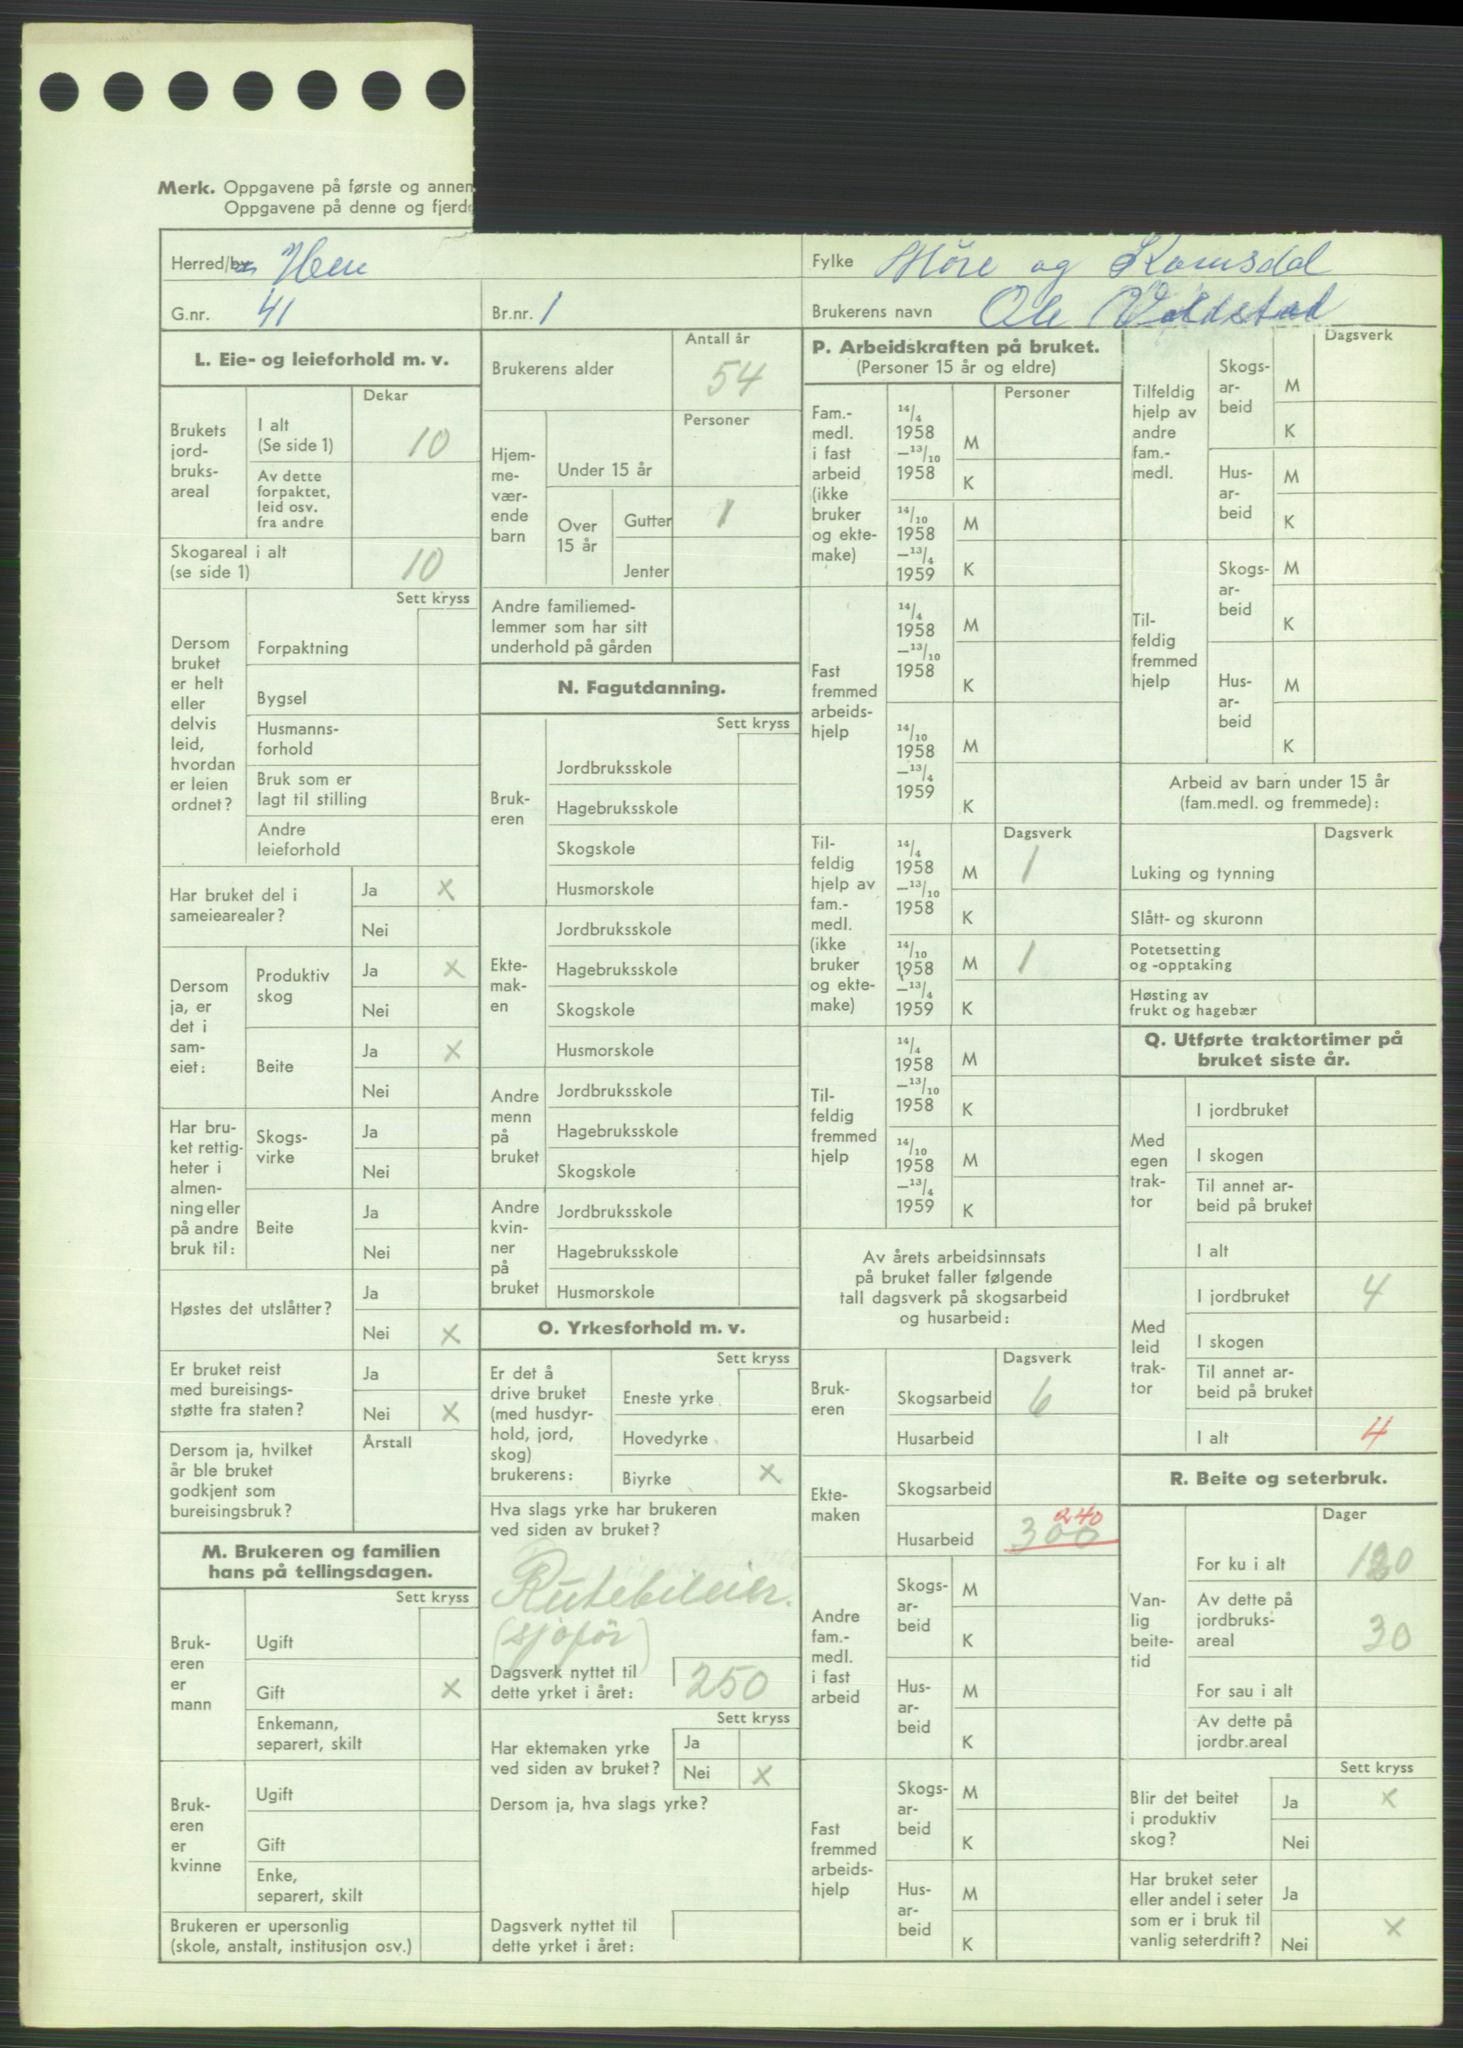 Merk. Oppgavene på første og annen
Oppgavene på denne og fjerd
Herred/by Hen
Fylke Møre og Romsdal
G.nr. 41
Br.nr. 1
Brukerens navn Ole Voldstad
L. Eie- og leieforhold m. v.
Dekar
Brukets jord- bruks- areal
I alt (Se side 1) 10
Av dette forpaktet, leid osv. fra andre
Skogareal i alt (se side 1) 10
Sett kryss
Dersom bruket er helt eller delvis leid, hvordan er leien ordnet?
Forpaktning
Bygsel
Husmanns- forhold
Bruk som er lagt til stilling
Andre leieforhold
Har bruket del i sameiearealer?
Ja x
Nei
Dersom ja, er det i sam- eiet:
Produktiv skog
Ja x
Nei
Beite
Ja x
Nei
Har bru- ket rettig- heter i almen- ning eller på andre bruk til:
Skogs- virke
Ja
Nei
Beite
Ja
Nei
Høstes det utslåtter?
Ja
Nei x
Er bruket reist med bureisings- støtte fra staten?
Ja
Nei x
Dersom ja, hvilket år ble bruket godkjent som bureisingsbruk?
Årstall
M. Brukeren og familien hans på tellingsdagen.
Sett kryss
Bruk- eren er mann
Ugift
Gift x
Enkemann, separert, skilt
Bruk- eren er kvinne
Ugift
Gift
Enke, separert, skilt
Brukeren er upersonlig (skole, anstalt, institusjon osv.)
Antall år
Brukerens alder 54
Personer
Hjem- me- vær- ende barn
Under 15 år
Over 15 år
Gutter 1
Jenter
Andre familiemed- lemmer som har sitt underhold på gården
N. Fagutdanning.
Sett kryss
Bruk- eren
Jordbruksskole
Hagebruksskole
Skogskole
Husmorskole
Ekte- mak- en
Jordbruksskole
Hagebruksskole
Skogskole
Husmorskole
Andre menn på bruket
Jordbruksskole
Hagebruksskole
Skogskole
Andre kvin- ner på bruket
Jordbruksskole
Hagebruksskole
Husmorskole
O. Yrkesforhold m. v.
Sett kryss
Er det å drive bruket (med husdyr- hold, jord, skog) brukerens:
Eneste yrke
Hovedyrke
Biyrke x
Hva slags yrke har brukeren ved siden av bruket?
Rutebileier.
(sjøfør)
Dagsverk nyttet til dette yrket i året: 250
Sett kryss
Har ektemaken yrke ved siden av bruket?
Ja
Nei x
Dersom ja, hva slags yrke?
Dagsverk nyttet til dette yrket i året:
P. Arbeidskraften på bruket.
(Personer 15 år og eldre)
Personer
Fam.- medl. i fast arbeid (ikke bruker og ekte- make)
14/4 1958 —13/10 1958
M
K
14/10 1958 —13/4 1959
M
K
Fast fremmed arbeids- hjelp
14/4 1958 —13/10 1958
M
K
14/10 1958 —13/4 1959
M
K
Dagsverk
Til- feldig hjelp av fam.- medl. (ikke bruker og ekte- make)
14/4 1958 —13/10 1958
M 1
K
14/10 1958 —13/4 1959
M 1
K
Til- feldig fremmed hjelp
14/4 1958 —13/10 1958
M
K
14/10 1958 —13/4 1959
M
K
Av årets arbeidsinnsats på bruket faller følgende tall dagsverk på skogsarbeid og husarbeid:
Dagsverk
Bruk- eren
Skogsarbeid 6
Husarbeid
Ekte- maken
Skogsarbeid
Husarbeid 300 240
Andre fam.- medl. i fast arbeid
Skogs- ar- beid
M
K
Hus- ar- beid
M
K
Fast fremmed arbeids- hjelp
Skogs- ar- beid
M
K
Hus- ar- beid
M
K
Dagsverk
Tilfeldig hjelp av andre fam.- medl.
Skogs- ar- beid
M
K
Hus- ar- beid
M
K
Til- feldig fremmed hjelp
Skogs- ar- beid
M
K
Hus- ar- beid
M
K
Arbeid av barn under 15 år (fam.medl. og fremmede):
Dagsverk
Luking og tynning
Slått- og skuronn
Potetsetting og -opptaking
Høsting av frukt og hagebær
Q. Utførte traktortimer på bruket siste år.
Med egen trak- tor
I jordbruket
I skogen
Til annet ar- beid på bruket
I alt
Med leid trak- tor
I jordbruket 4
I skogen
Til annet ar- beid på bruket
I alt 4
R. Beite og seterbruk.
Dager
Van- lig beite- tid
For ku i alt 120
Av dette på jordbruks- areal 30
For sau i alt
Av dette på jordbr.areal
Sett kryss
Blir det beitet i produktiv skog?
Ja x
Nei
Har bruket seter eller andel i seter som er i bruk til vanlig seterdrift?
Ja
Nei x